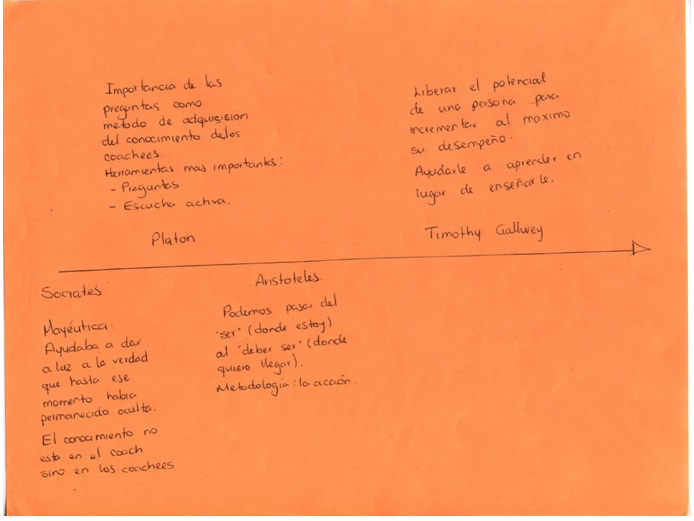 Importancia de las
preguntas como
metodo de adquisision
del conocimiento delos
coachees.
Herramientas mas importantes:
- Preguntas
- Escucha activa.
Platon
Liberar el potencial
de una persona para
incrementar al maximo
su desempeño.
Ayudarle a aprender en
lugar de enseñarle.
Timothy Gallwey
Socrates
Mayéutica:
Ayudaba a dar
a luz a la verdad
que hasta ese
momento habia
permanecido oculta.
El conocimiento no
esta en el coach
sino en los coachees
Aristoteles
Podemos pasar del
"ser" (donde estoy)
al "deber ser" (donde
quiero llegar).
Metodologia: la acción.